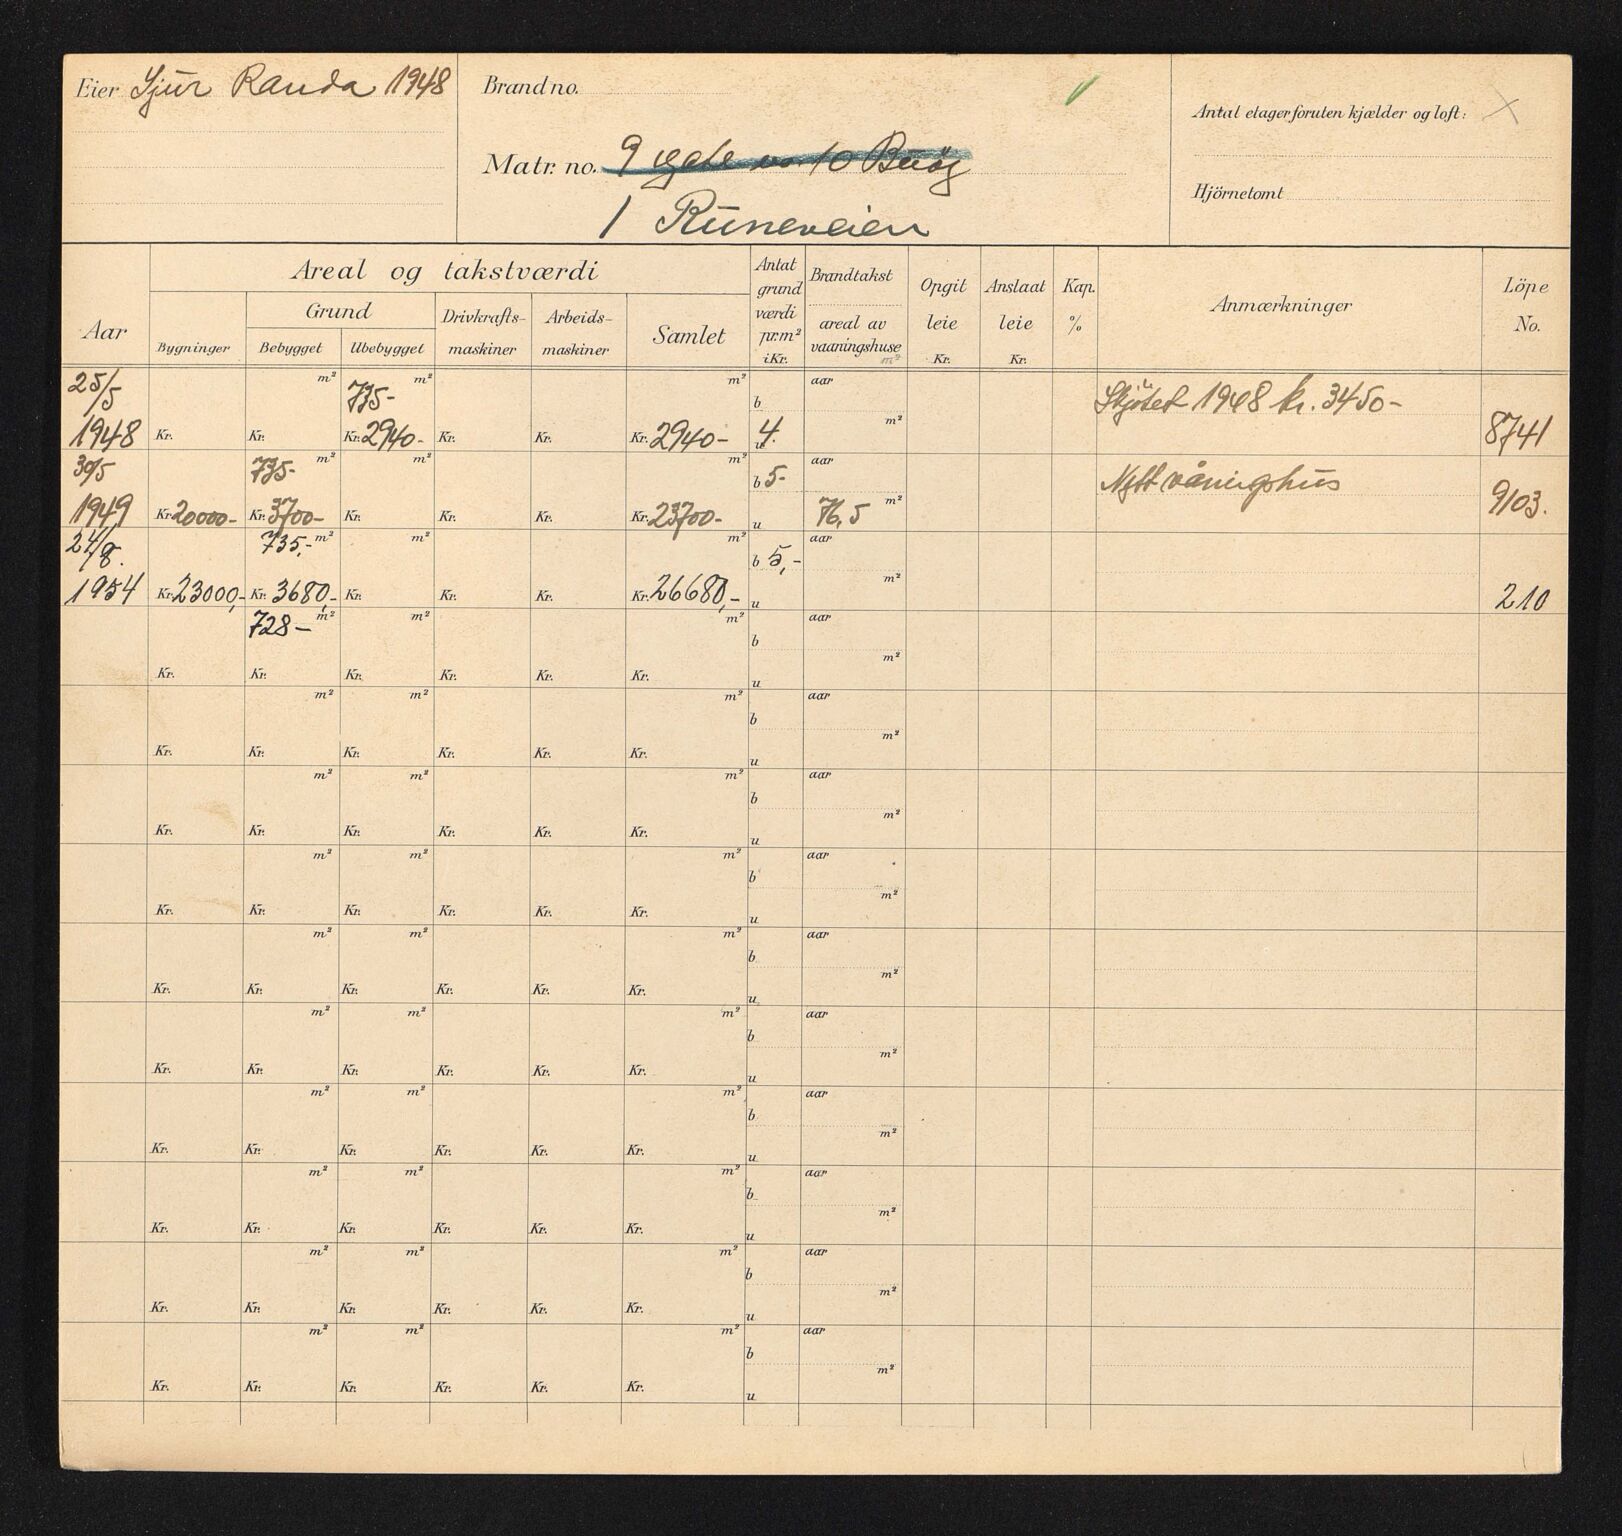 Eier Sjur Randa 1948
Brand no.
Matr. no. 9 10 Buøy
1 Runeveien
Antal etager foruten kjælder og loft:
Hjörnetomt
Aar
Areal og takstværdi
Bygninger
Grund
Bebygget
Ubebygget
Drivkrafts-
maskiner
Arbeids-
maskiner
Samlet
Antat
grund
værdi
pr. m²
i Kr.
Brandtakst
areal av
vaaningshuse
m²
Opgit
leie
Kr.
Anslaat
leie
Kr.
Kap.
%
Anmærkninger
Löpe
No.
25/5 m² 735- m² m² b aar Skjøtet 1948 kr. 3450-
1948 Kr. Kr. Kr. 2940- Kr. Kr. Kr. 2940- u 4. m² 8741
30/5 735- m² m² m² b 5- aar Nytt våningshus
1949 Kr. 20000- Kr. 3700- Kr. Kr. Kr. Kr. 23700- u 76,5 m² 9103.
24/8. 735,- m² m² m² b 5,- aar
1954 Kr. 23000,- Kr. 3680,- Kr. Kr. Kr. Kr. 26680,- u m² 210
728- m² m² m² b aar
Kr. Kr. Kr. Kr. Kr. Kr. u m²
m² m² m² b aar
Kr. Kr. Kr. Kr. Kr. Kr. u m²
m² m² m² b aar
Kr. Kr. Kr. Kr. Kr. Kr. u m²
m² m² m² b aar
Kr. Kr. Kr. Kr. Kr. Kr. u m²
m² m² m² b aar
Kr. Kr. Kr. Kr. Kr. Kr. u m²
m² m² m² b aar
Kr. Kr. Kr. Kr. Kr. Kr. u m²
m² m² m² b aar
Kr. Kr. Kr. Kr. Kr. Kr. u m²
m² m² m² b aar
Kr. Kr. Kr. Kr. Kr. Kr. u m²
m² m² m² b aar
Kr. Kr. Kr. Kr. Kr. Kr. u m²
m² m² m² b aar
Kr. Kr. Kr. Kr. Kr. Kr. u m²